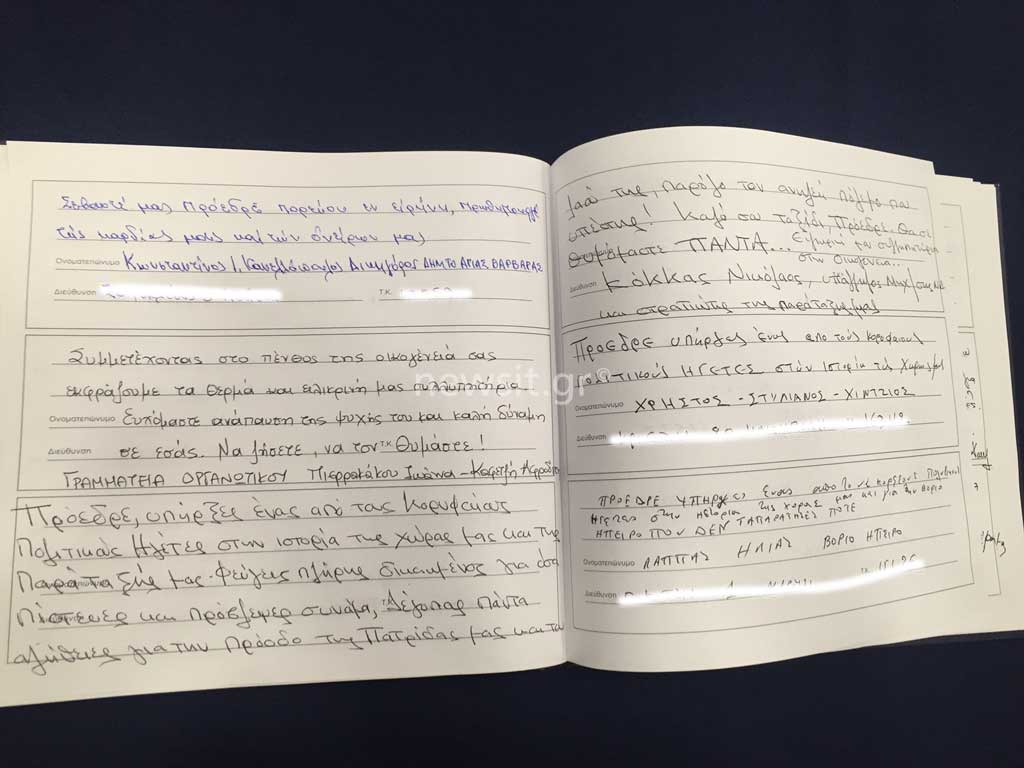 Σεβαστέ μας Πρόεδρε πορεύου εν ειρήνη, πρωθυπουργέ
της καρδιάς μας και των ονείρων μας
Ονοματεπώνυμο Κωνσταντίνος Ι. Δικηγόρος ΔΗΜΟ ΑΓΙΑΣ ΒΑΡΒΑΡΑΣ
Διεύθυνση Τ.Κ.
Συμμετέχοντας στο πένθος της οικογένειά σας
εκφράζουμε τα θερμά και ειλικρινή μας συλλυπητήρια
Ονοματεπώνυμο Ευχόμαστε ανάπαυση της ψυχής του και καλή δύναμη
Διεύθυνση σε εσάς. Να ζήσετε, να τον Τ.Κ. θυμάστε!
ΓΡΑΜΜΑΤΕΙΑ ΟΡΓΑΝΩΤΙΚΟΥ Πιερρακάκου Ιωάννα -
Πρόεδρε, υπήρξες ένας από τους Κορυφαίους
Πολιτικούς Ηγέτες στην ιστορία της χώρας μας και της
Παράταξής μας. Φεύγεις πλήρης δικαιωμένος για όσα
πίστευες και πρόσφερες συνάμα, λέγοντας πάντα
αλήθειες για την Πρόοδο της Πατρίδας μας και το
λαό της, παρόλο τον ανηλεή πόλεμο που
υπέστης! Καλό σου ταξίδι, Πρόεδρε. Θα σε
θυμόμαστε ΠΑΝΤΑ... Ειλικρινή μου συλλυπητήρια
στην Οικογένεια..
Διεύθυνση Κόκκας Νικόλαος,
και στρατιώτης της παράταξής μας
Πρόεδρε υπήρξες ένας από τους κορυφαίους
πολιτικούς ΗΓΕΤΕΣ στην ιστορία της χώρας μας
Ονοματεπώνυμο ΧΡΗΣΤΟΣ - ΣΤΥΛΙΑΝΟΣ - ΧΙΝΤΖΙΟΣ
Διεύθυνση
ΠΡΟΕΔΡΕ ΥΠΗΡΞΕΣ ένας από τους κορυφαίους Πολιτικούς
Ηγέτες στην ιστορία της χώρας μας και για την Βόριο
ΗΠΕΙΡΟ ΠΟΥ ΔΕΝ ΠΟΤΕ
Ονοματεπώνυμο ΛΑΠΠΑΣ ΗΛΙΑΣ ΒΟΡΙΟ ΗΠΕΙΡΟ
Διεύθυνση
newsit.gr